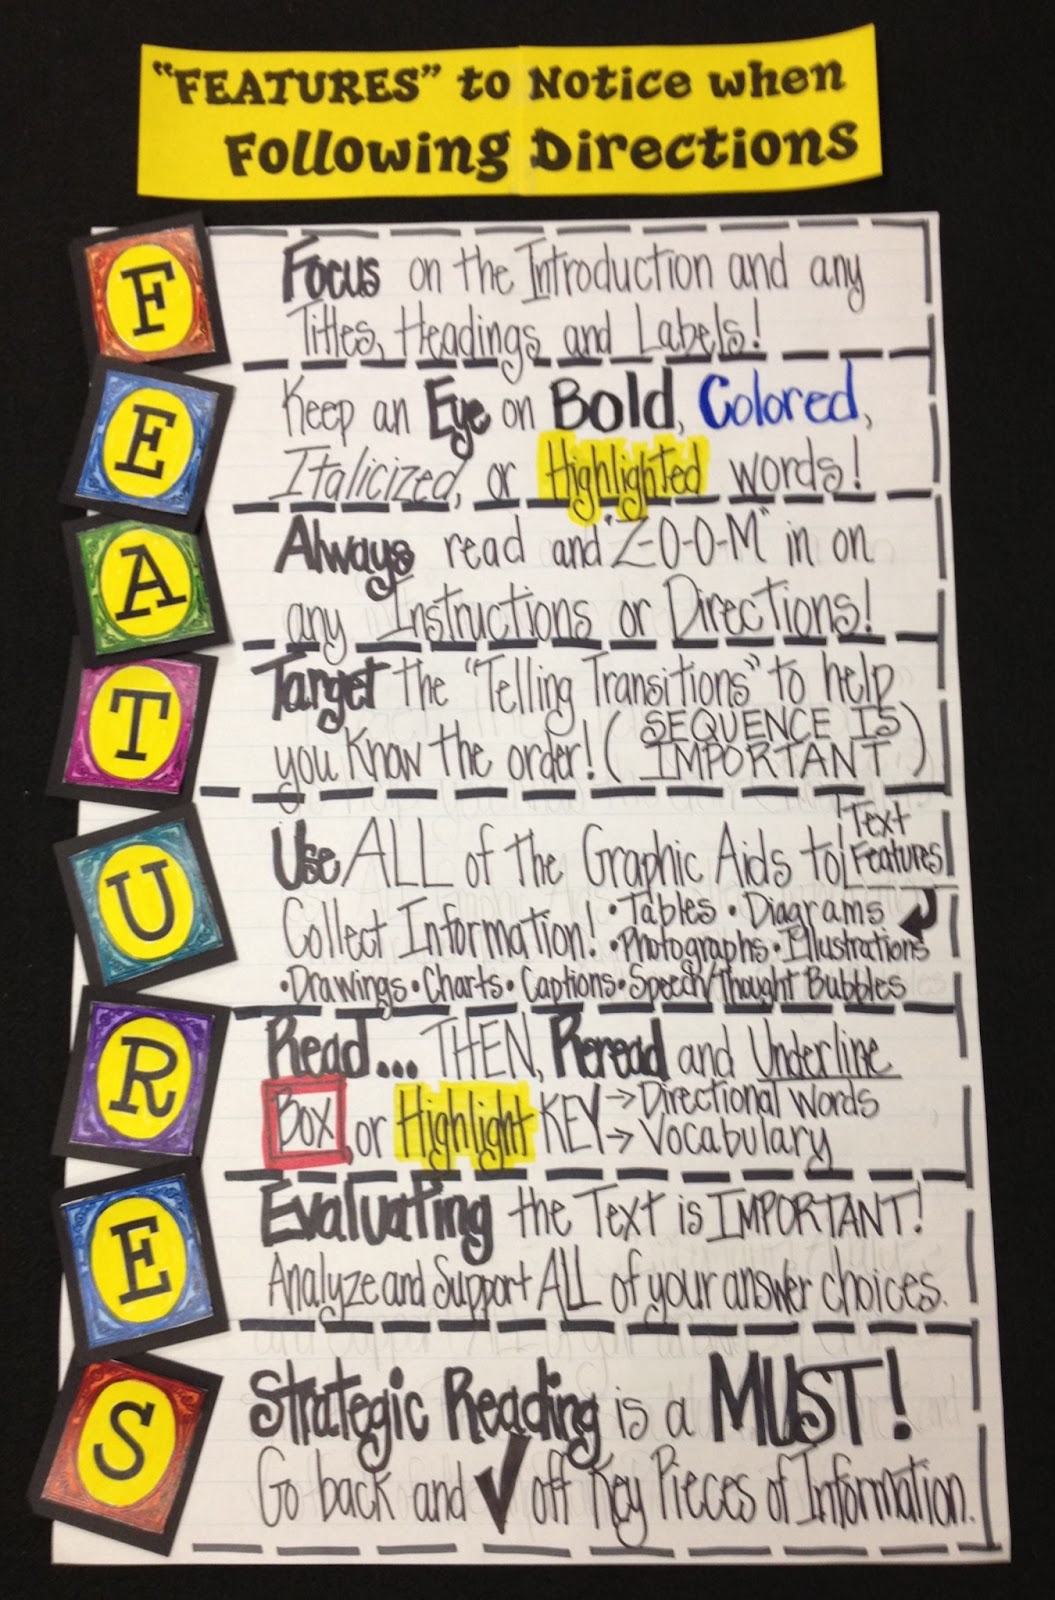 "FEATURES" to Notice when
Following Directions
F
Focus on the Introduction and any
Titles, Headings and Labels!
E
Keep an Eye on Bold, Colored,
Italicized, or Highlighted words!
A
Always read and "Z-O-O-M" in on
any Instructions or Directions!
T
Target the "Telling Transitions" to help
you know the order! (SEQUENCE IS
IMPORTANT)
U
Use ALL of the Graphic Aids to
Collect Information!
Text
Features
• Tables • Diagrams
• Photographs • Illustrations
• Drawings • Charts • Captions • Speech/Thought Bubbles
R
Read... THEN, Reread and Underline
Box, or Highlight KEY → Directional Words
→ Vocabulary
E
Evaluating the Text is IMPORTANT!
Analyze and Support ALL of your answer choices.
S
Strategic Reading is a MUST!
Go back and ✓ off Key Pieces of Information.